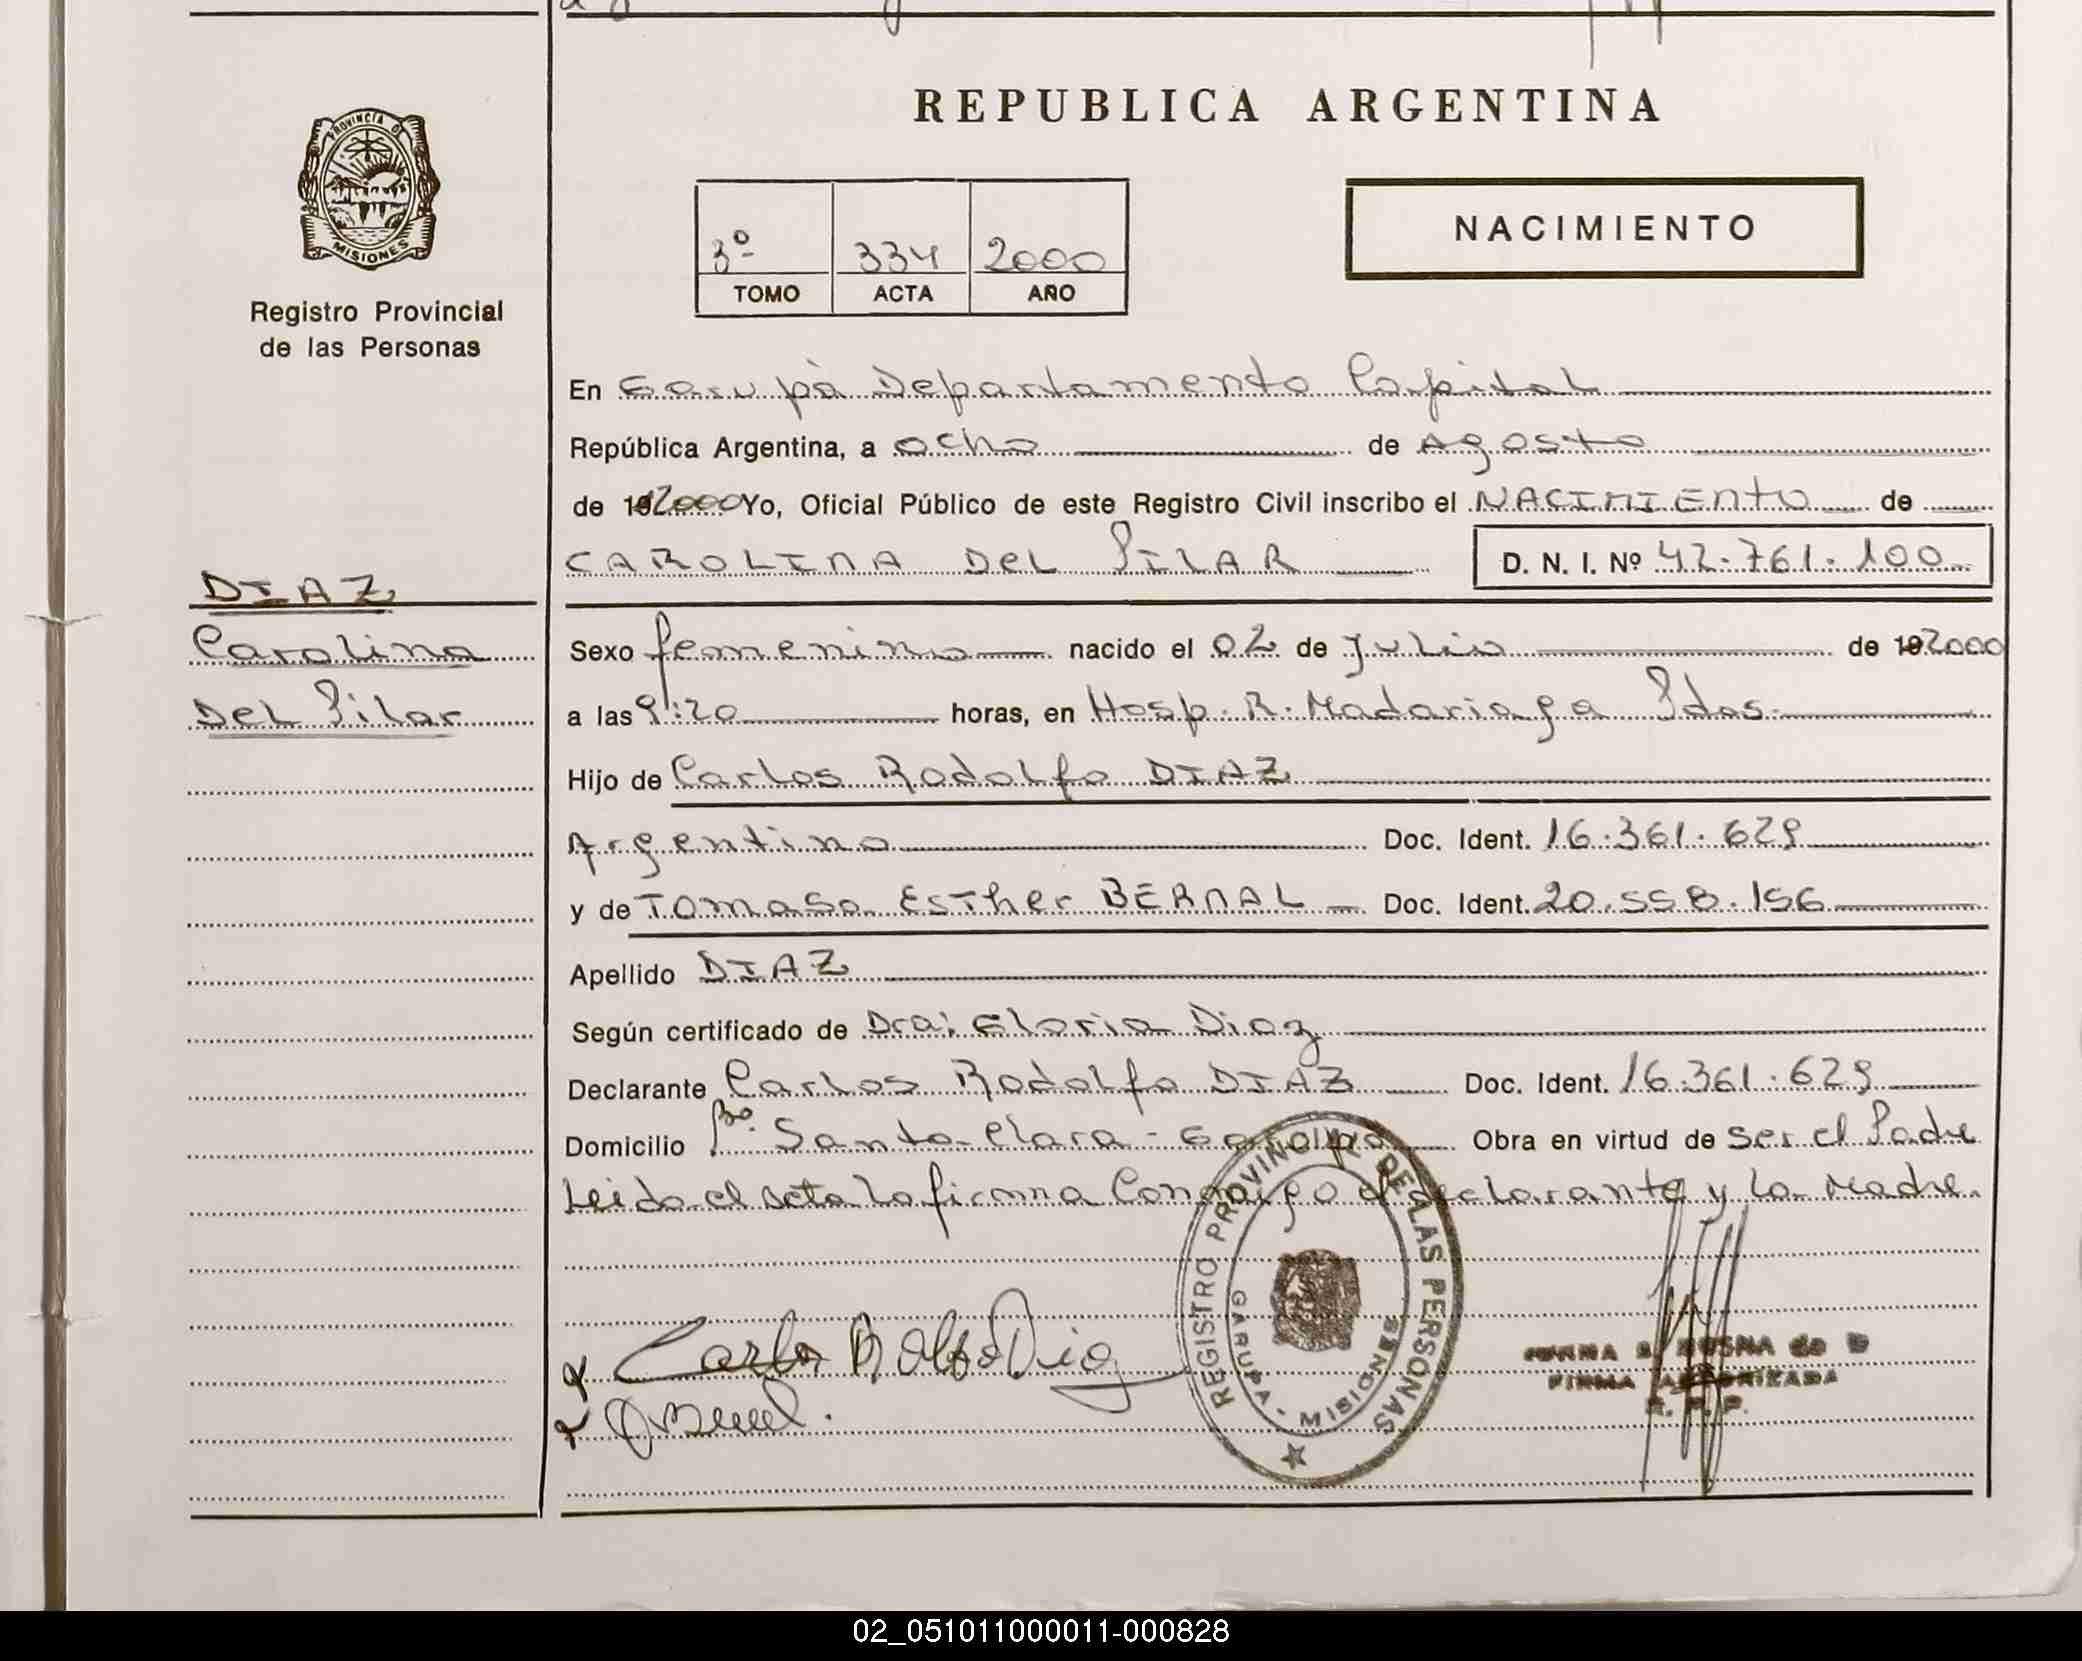 REPUBLICA ARGENTINA
PROVINCIA DE
MISIONES
Registro Provincial
de las Personas
3º 334 2000
TOMO ACTA AÑO
NACIMIENTO
En Garupà Departamento Capital
República Argentina, a ocho de Agosto
de 192000 Yo, Oficial Público de este Registro Civil inscribo el NACIMIENTO de
CAROLINA DEL PILAR D. N. I. Nº 42.761.100
DIAZ
Carolina
Del Pilar
Sexo femenino nacido el 02 de Julio de 192000
a las 9:20 horas, en Hosp. R. Madariaga Pdas.
Hijo de Carlos Rodolfo DIAZ
Argentino Doc. Ident. 16.361.629
y de Tomasa Esther BERNAL Doc. Ident. 20.558.156
Apellido DIAZ
Según certificado de Dra: Gloria Diaz
Declarante Carlos Rodolfo DIAZ Doc. Ident. 16.361.629
Domicilio Bº. Santa Clara - Garupa Obra en virtud de ser el Padre
Leida el acta la firma Conmigo el declarante y la Madre.
REGISTRO PROVINCIAL DE LAS PERSONAS
GARUPA - MISIONES
Carlos Rodolfo Diaz
FIRMA AUTORIZADA
R. P. P.
02_051011000011-000828